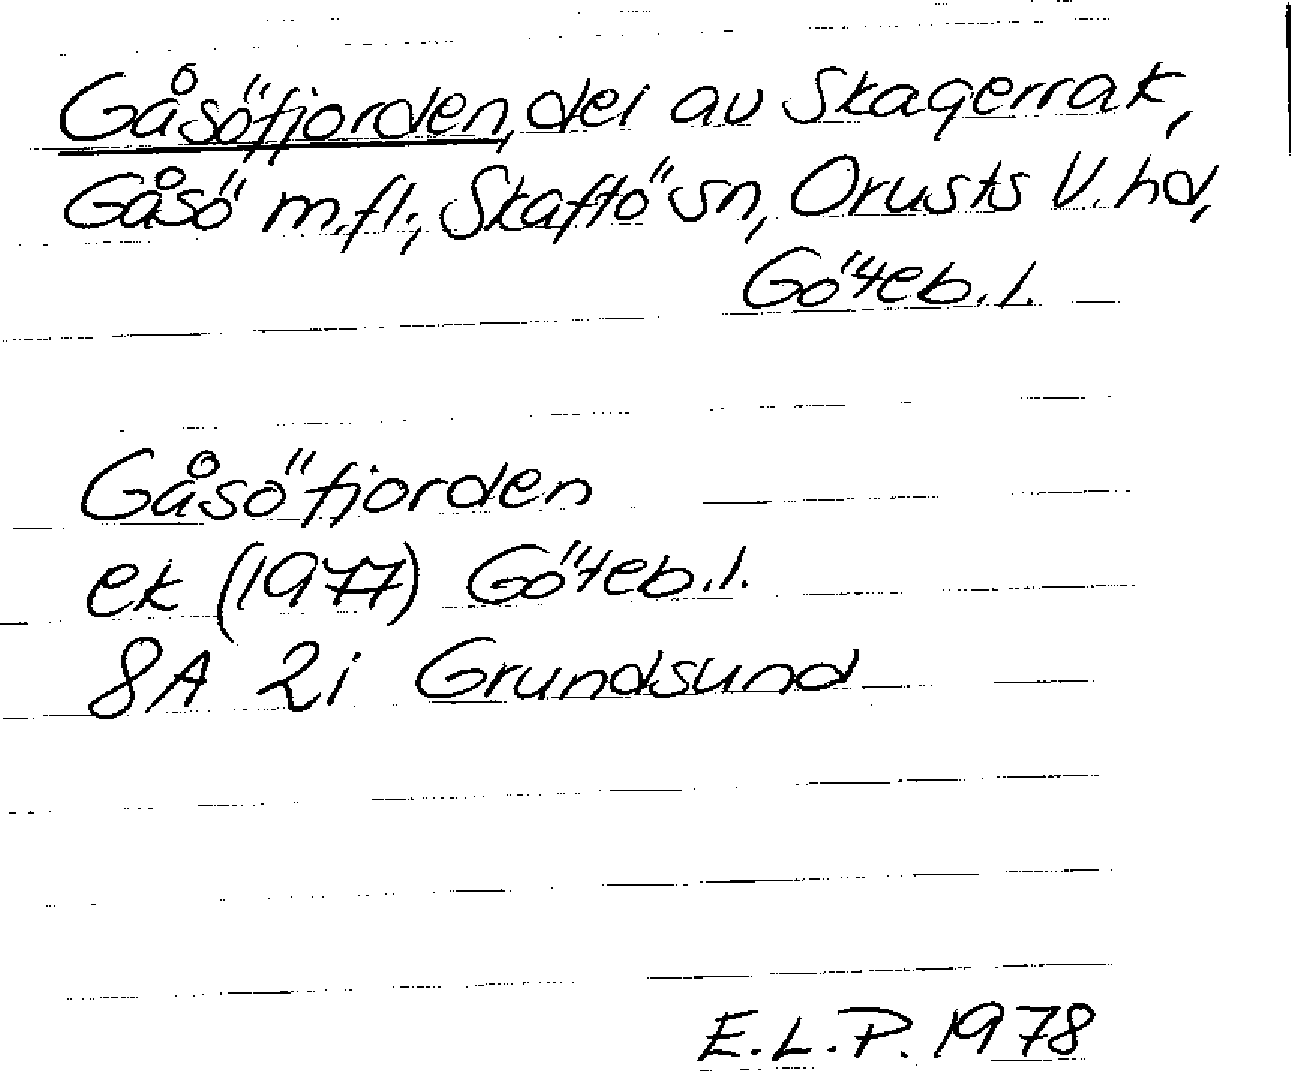 Gåsöfjorden, del av Skagerrak,
Gåsö m.fl., Skaftö sn, Orusts V. hd,
Göteb. l.
Gåsöfjorden
ek (1977) Göteb. l.
8A 2i Grundsund
E.L.P. 1978